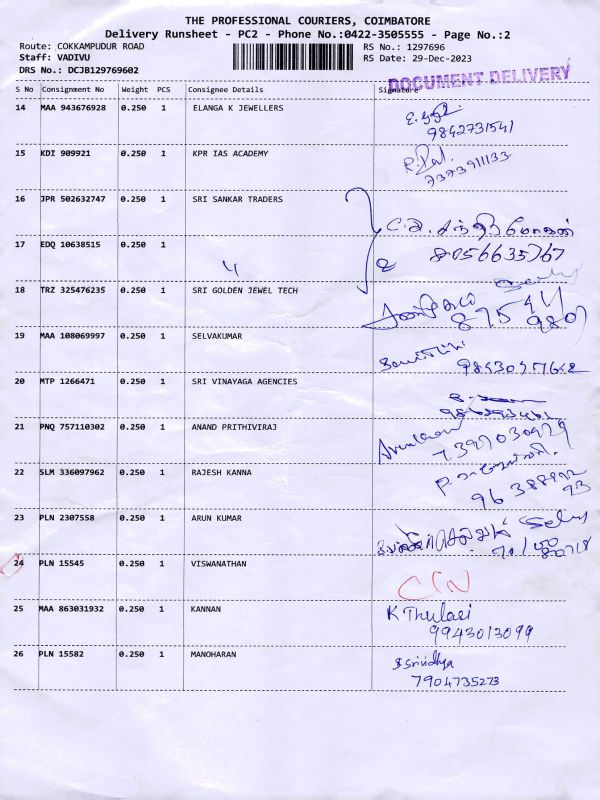 THE PROFESSIONAL COURIERS, COIMBATORE
Delivery Runsheet - PC2 - Phone No.:0422-3505555 - Page No.:2
Route: COKKAMPUDUR ROAD RS No.: 1297696
Staff: VADIVU RS Date: 29-Dec-2023
DRS No.: DCJB129769602
DOCUMENT DELIVERY
S No Consignment No Weight PCS Consignee Details Signature
14 MAA 943676928 0.250 1 ELANGA K JEWELLERS
9842731541
15 KDI 909921 0.250 1 KPR IAS ACADEMY
7373911133
16 JPR 502632747 0.250 1 SRI SANKAR TRADERS
17 EDQ 10638515 0.250 1
8056635767
18 TRZ 325476235 0.250 1 SRI GOLDEN JEWEL TECH
19 MAA 108069997 0.250 1 SELVAKUMAR
20 MTP 1266471 0.250 1 SRI VINAYAGA AGENCIES
21 PNQ 757110302 0.250 1 ANAND PRITHIVIRAJ
7397030929
22 SLM 336097962 0.250 1 RAJESH KANNA
23 PLN 2307558 0.250 1 ARUN KUMAR
24 PLN 15545 0.250 1 VISWANATHAN
25 MAA 863031932 0.250 1 KANNAN K Thulasi
9943013099
26 PLN 15582 0.250 1 MANOHARAN S Srividhya
7904735273